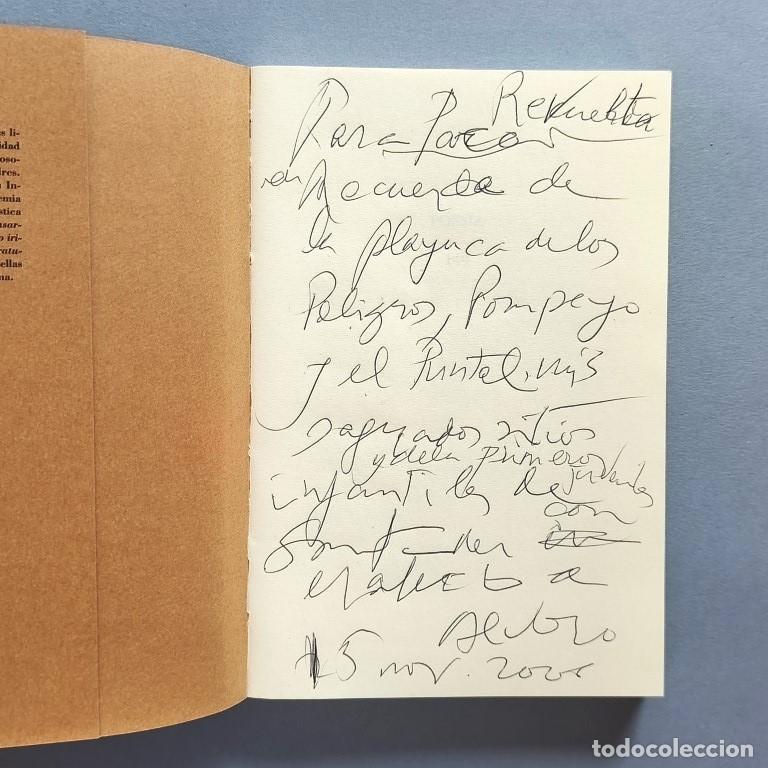 s li-
idad
oso-
dres.
n In-
emia
stica
nsar-
o iri-
ratu-
ellas
na.
Para Paco Revuelta
en Recuerdo de
la playuca de los
Peligros, Pompeyo
y el Puntal, mis
sagrados sitios
y de la primeros juveniles
infantiles de
Santander con
el afecto de
15 nov. 2006
todocoleccion